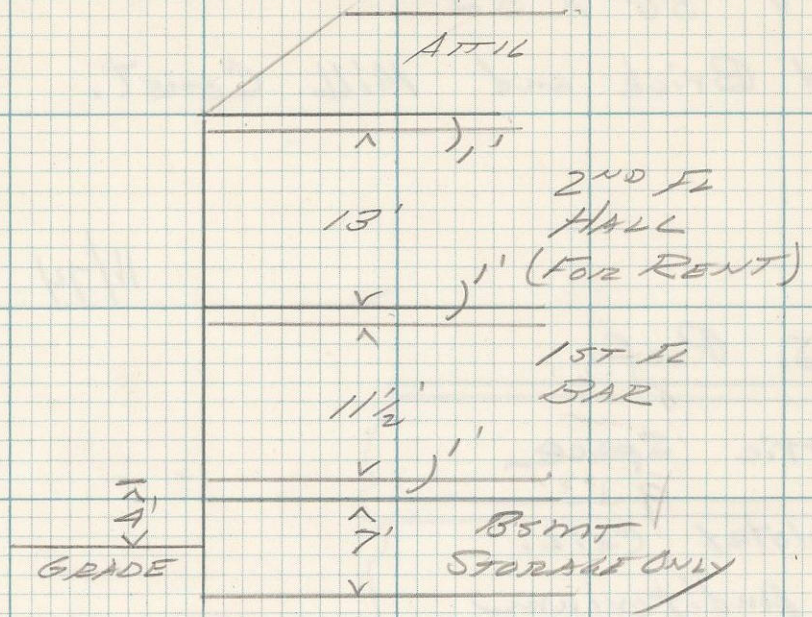 ATTIC
1'
13'
2ND FL
HALL
(FOR RENT)
1'
1ST FL
BAR
11½'
1'
4'
7'
BSMT
STORAGE ONLY
GRADE